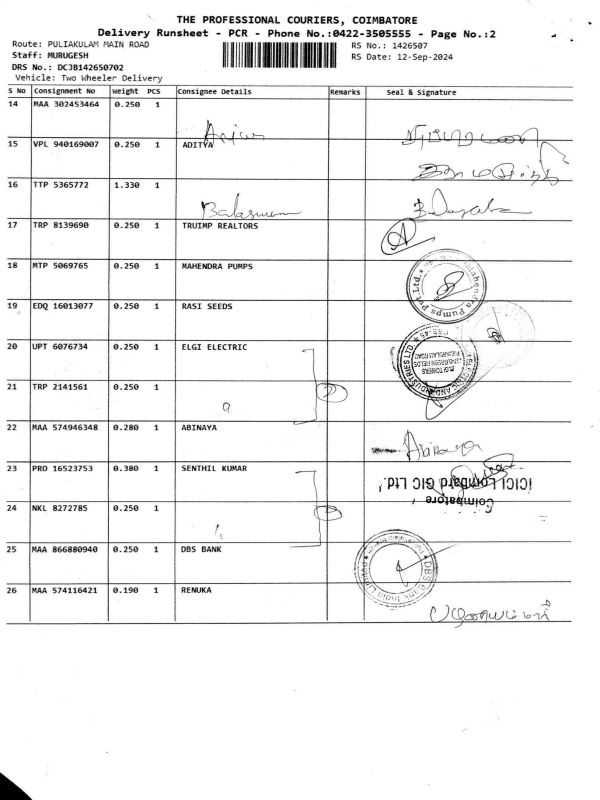 THE PROFESSIONAL COURIERS, COIMBATORE
Delivery Runsheet - PCR - Phone No.:0422-3505555 - Page No.:2
Route: PULIAKULAM MAIN ROAD RS No.: 1426507
Staff: MURUGESH RS Date: 12-Sep-2024
DRS No.: DCJB142650702
Vehicle: Two Wheeler Delivery
S No Consignment No Weight PCS Consignee Details Remarks Seal & Signature
14 MAA 302453464 0.250 1
15 VPL 940169007 0.250 1 ADITYA
16 TTP 5365772 1.330 1
17 TRP 8139690 0.250 1 TRUIMP REALTORS
18 MTP 5069765 0.250 1 MAHENDRA PUMPS
19 EDQ 16013077 0.250 1 RASI SEEDS
20 UPT 6076734 0.250 1 ELGI ELECTRIC
21 TRP 2141561 0.250 1
22 MAA 574946348 0.280 1 ABINAYA
23 PRO 16523753 0.380 1 SENTHIL KUMAR
ICICI Lombard GIC Ltd.,
Coimbatore
24 NKL 8272785 0.250 1
25 MAA 866880940 0.250 1 DBS BANK
DBS Bank India Limited
26 MAA 574116421 0.190 1 RENUKA